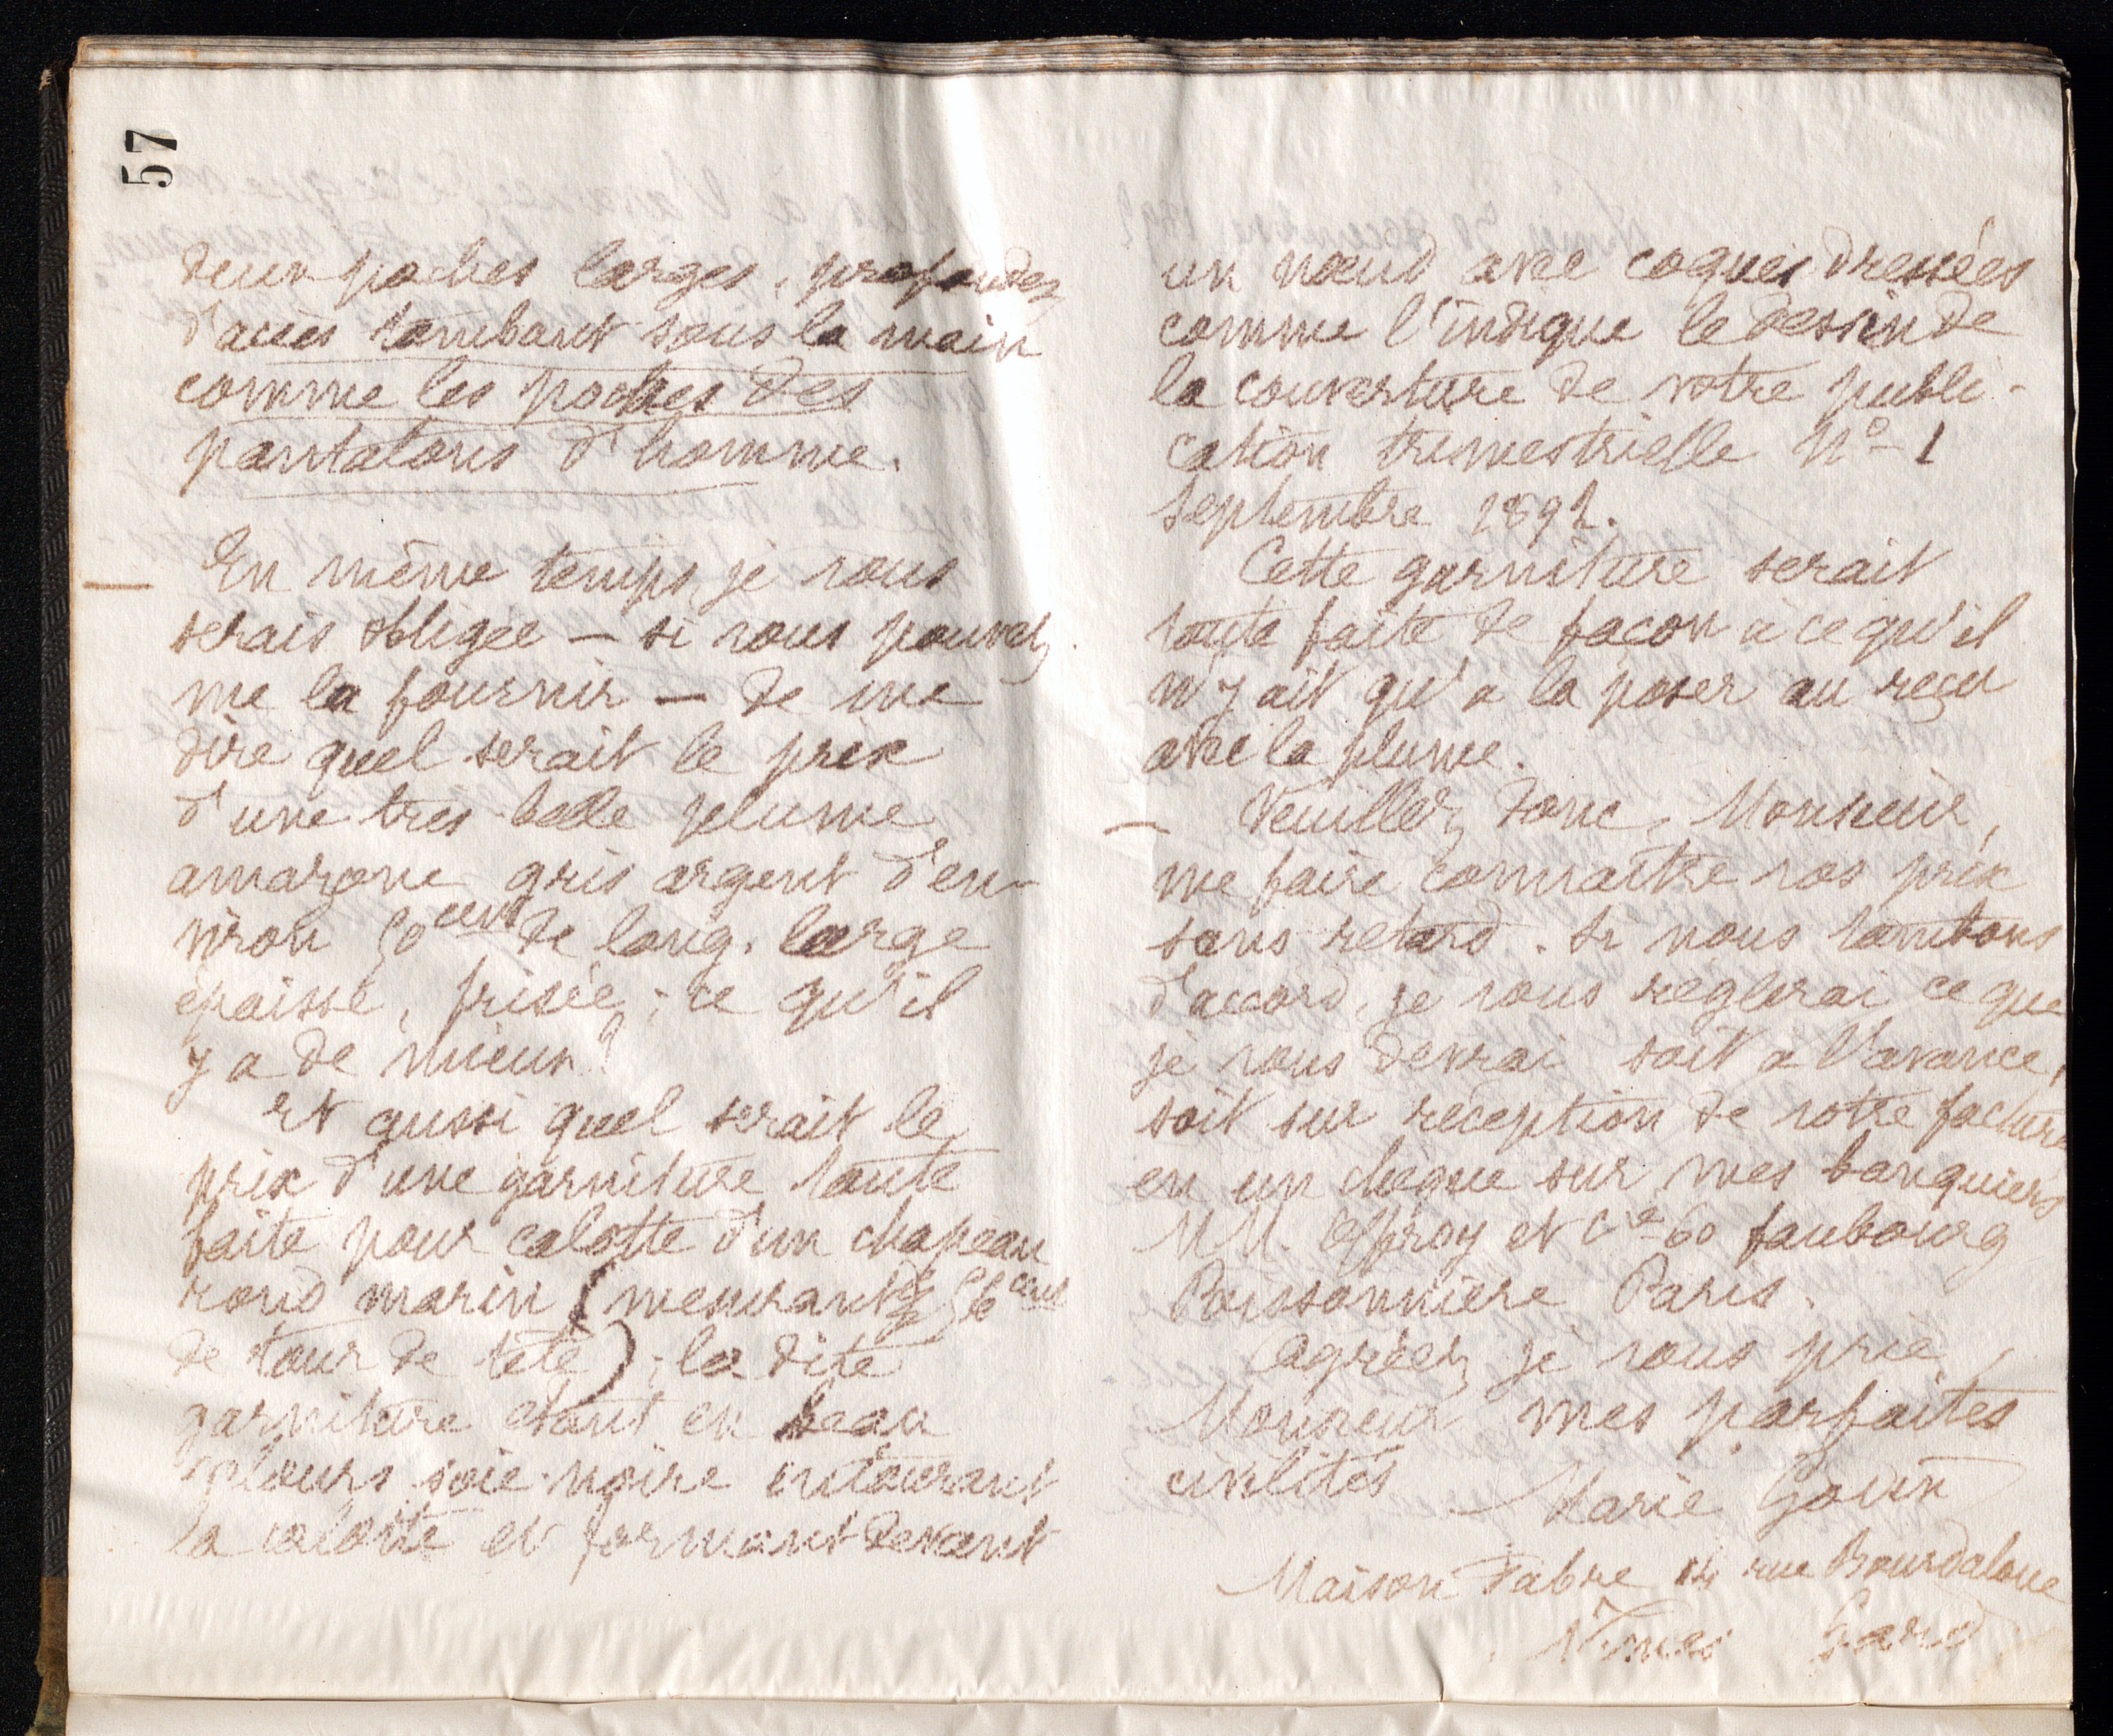 57
deux poches larges, profondes
d'accès tombant sous la main
comme les poches des
pantalons d'homme.
— En même temps, je vous
serais obligée — si vous pouvez
me la fournir — de me
dire quel serait le prix
d'une très belle plume
amazone gris argent d'en-
viron 50 cent de long. large
épaisse, frisée, ; ce qu'il
y a de mieux?
Et aussi quel serait le
prix d'une garniture toute
faite pour calotte d'un chapeau
rond marin (mesurant 56 cent
de tour de tête) ; la dite
garniture étant en beau
velours soie noire entourant
la calotte et formant devant
un nœud avec coques dressées
comme l'indique le dessin de
la couverture de votre publi-
cation trimestrielle No 1
Septembre 1892.
Cette garniture serait
toute faite de façon à ce qu'il
n'y ait qu'à la poser au reçu
avec la plume.
— Veuillez donc, Monsieur,
me faire connaître vos prix
sans retard. Si nous tombons
d'accord, je vous règlerai ce que
je vous devrai soit à l'avance,
soit sur réception de votre facture
en un chèque sur mes banquiers
MM. Offroy et Cie 60 faubourg
Poissonnière Paris.
Agréez, je vous prie,
Monsieur mes parfaites
civilités Marie Goüin
Maison Fabre 14 rue Bourdaloue
Nîmes Gard